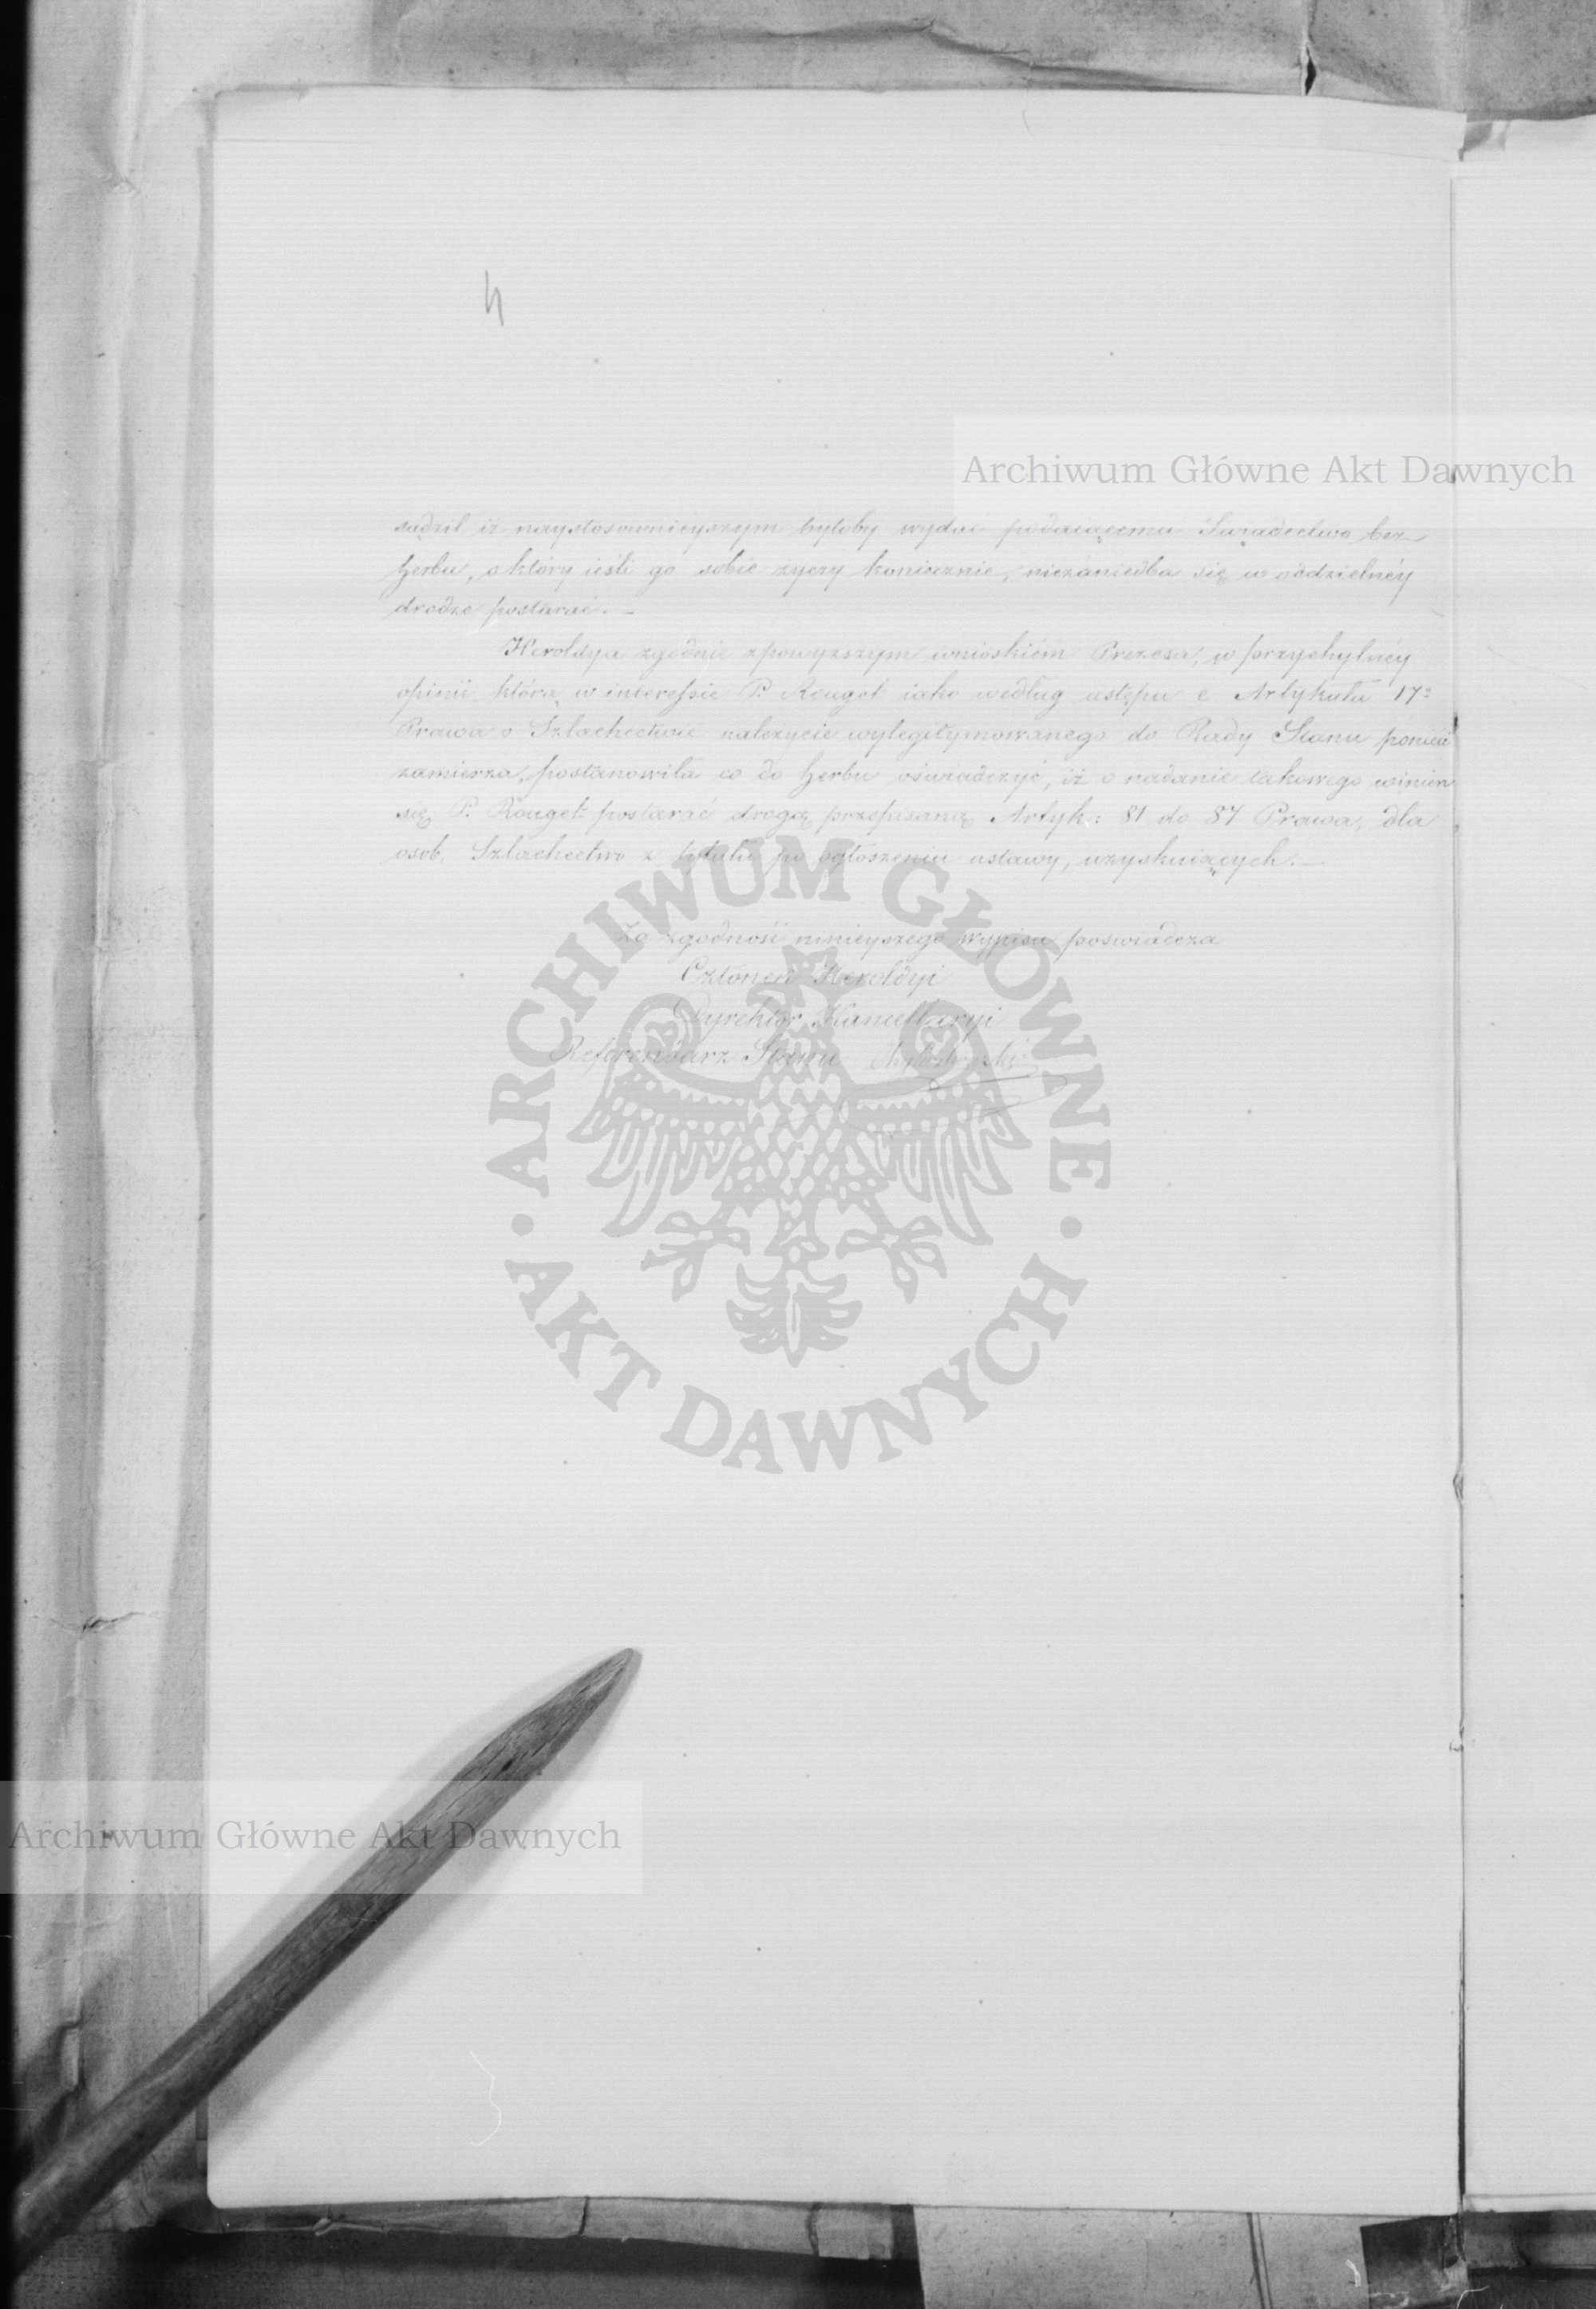 4
Archiwum Główne Akt Dawnych
sądził iż naystosownieyszym byłoby wydać podaiącemu Swiadectwo bez
herbu, o który ieśli go sobie życzy koniecznie, niezaniedba się w oddzielnéy
drodze postarać. —
Heroldya zgodnie z powyższym wnioskiem Prezesa, w przychylnéy
opinii którą w interessie P. Rouget iako według ustępu e Artykułu 17º
Prawa o Szlachectwie należycie wylegitymowanego do Rady Stanu ponieść
zamierza, postanowiła co do herbu oświadczyć, iż o nadanie takowego winien
się P. Rouget postarać drogą przepisaną Artyk: 81 do 87 Prawa, dla
osob, Szlachectwo z tytułu po ogłoszeniu ustawy, uzyskuiących. —
Za zgodność ninieyszego wypisu poswiadcza
Członek Heroldyi
Dyrektor Kancellaryi
Referendarz Stanu
ARCHIWUM GŁÓWNE
AKT DAWNYCH
Archiwum Główne Akt Dawnych